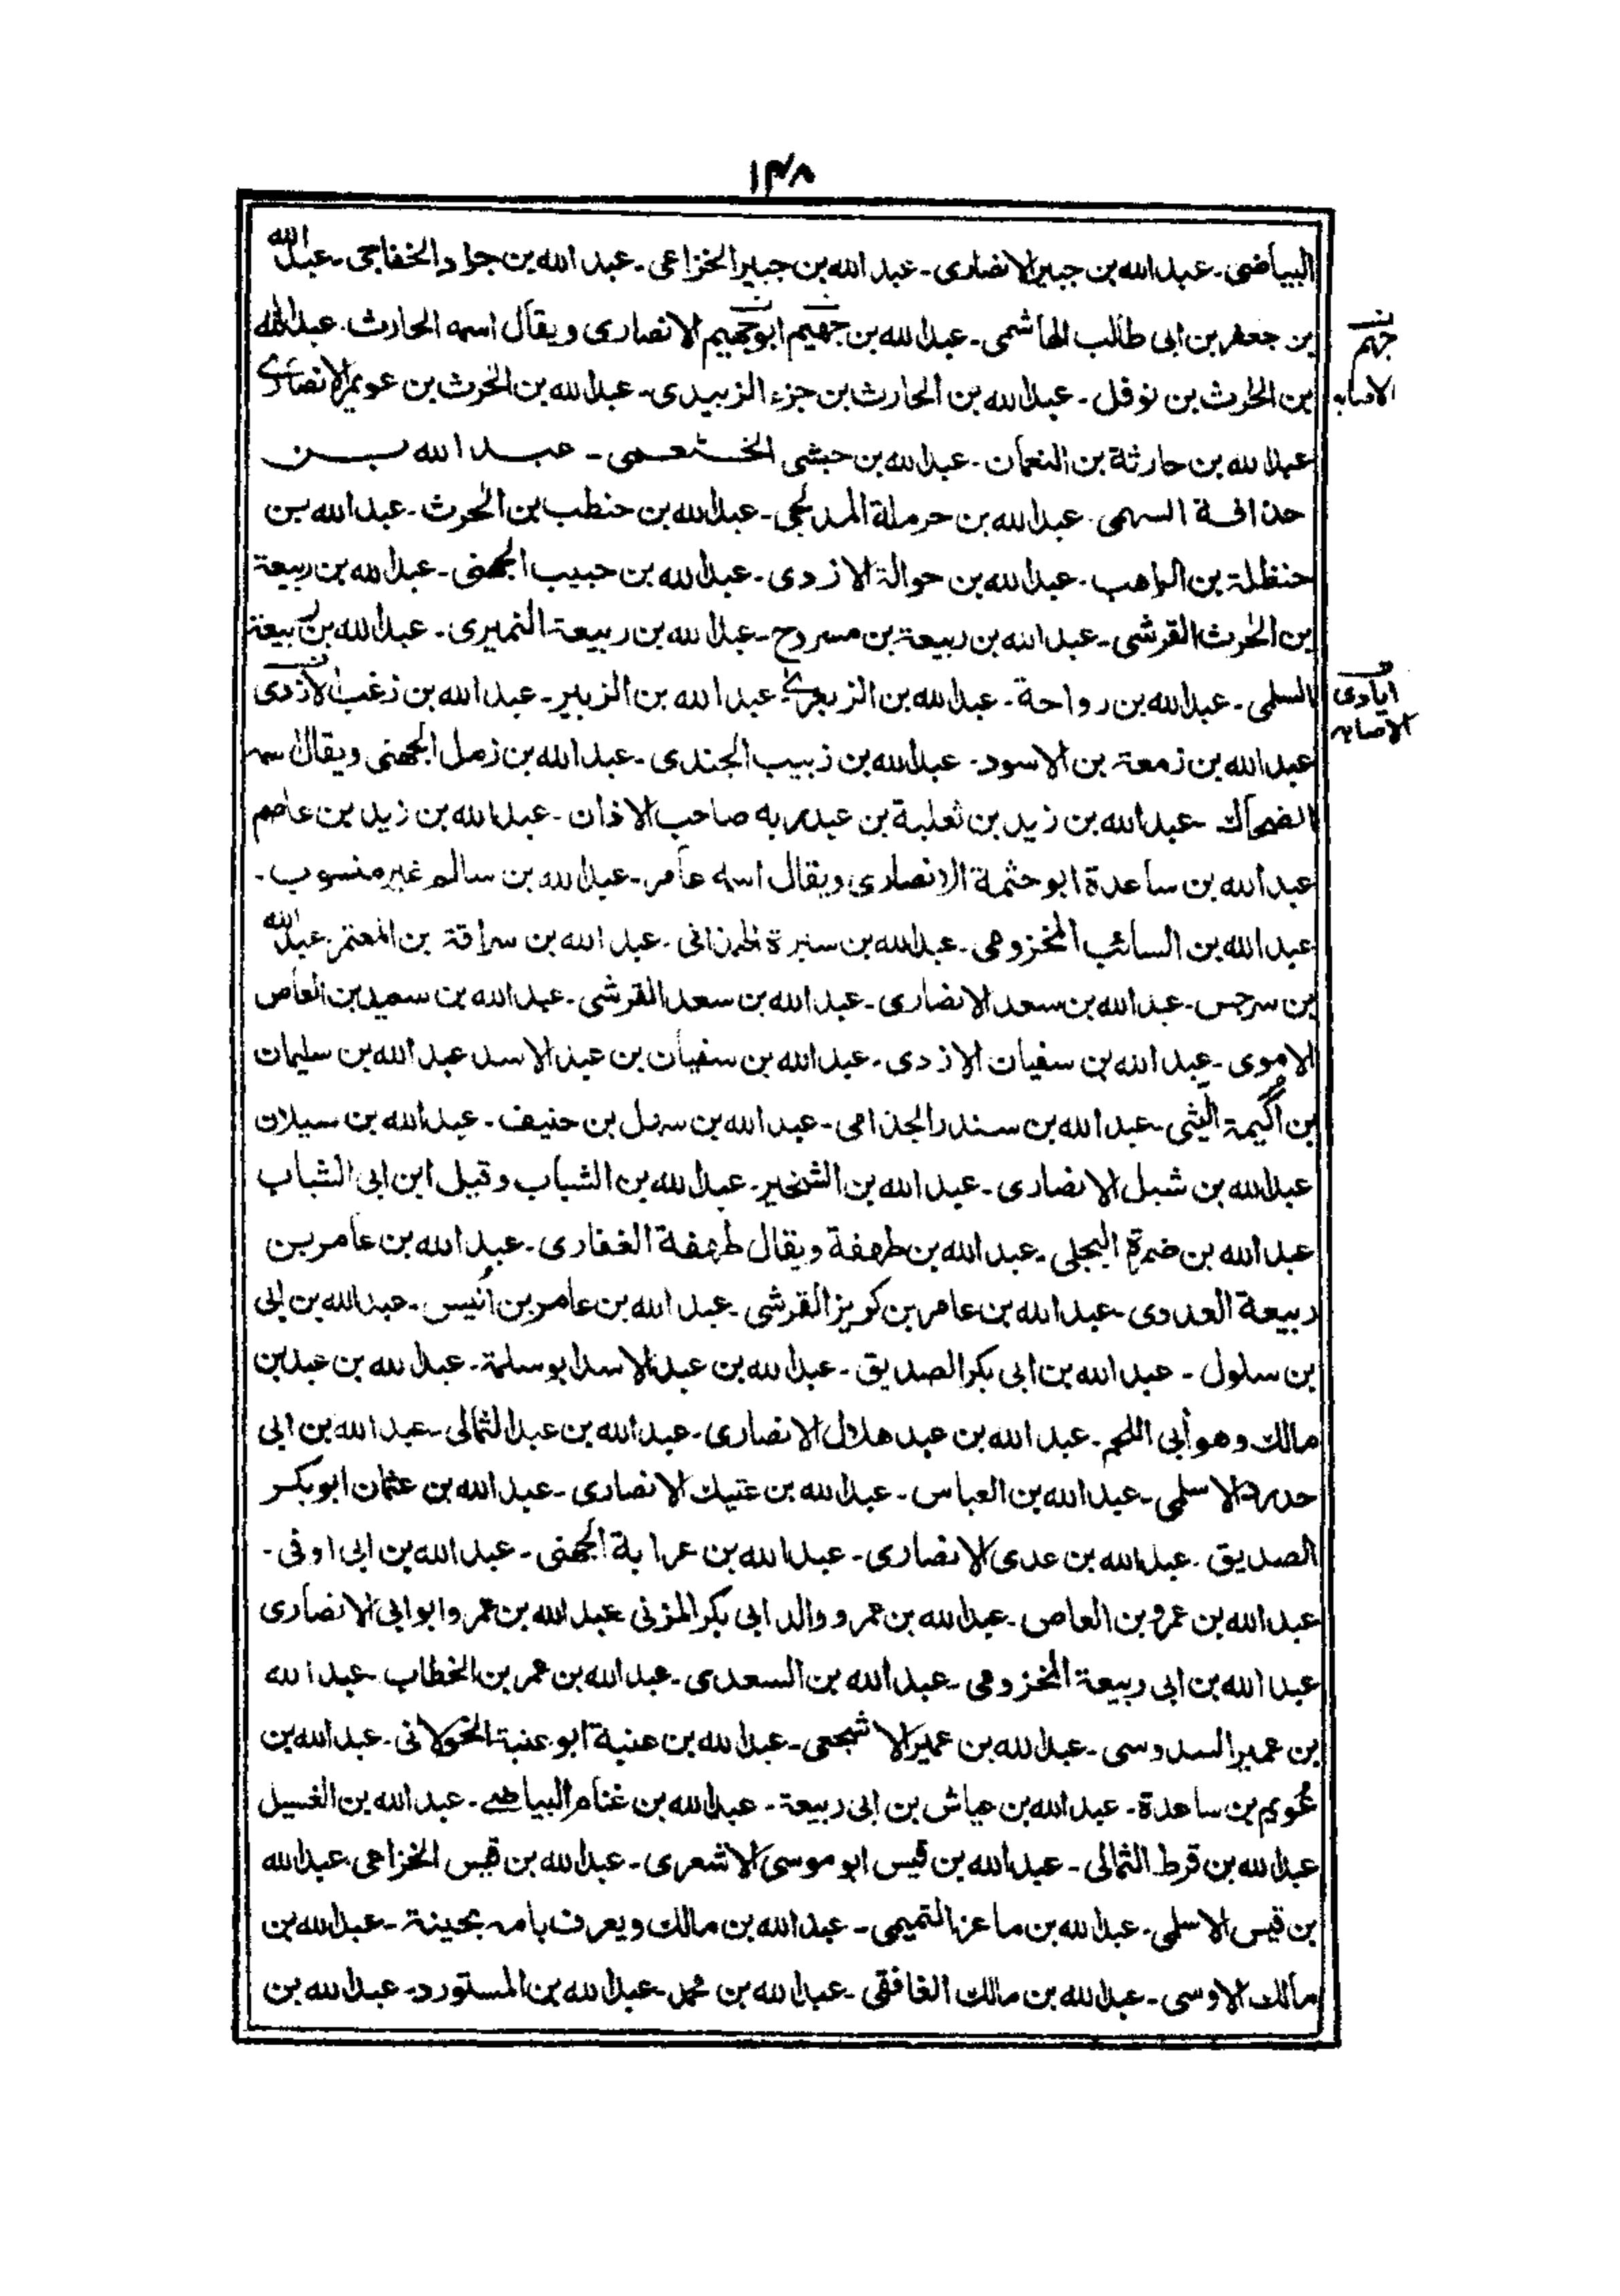 ١٣٨
البياضى۔ عبد الله بن جبير الانصارى۔ عبد الله بن جبير الخزاعى۔ عبد الله بن جراد الخفاجى۔ عبد الله
بن جعفر بن ابى طالب الهاشمى۔ عبد الله بن جهيم ابو جهيم الانصارى ويقال اسمه الحارث۔ عبد الله
جهم
الاصابه
بن الحرث بن نوفل۔ عبد الله بن الحارث بن جزء الزبيدى۔ عبد الله بن الحرث بن عويمر الانصارى
عبد الله بن حارثة بن النعمان۔ عبد الله بن حبشى الخثعمى۔ عبد الله بن
حذافة السهمى۔ عبد الله بن حرملة المدلجى۔ عبد الله بن حنطب بن الحرث۔ عبد الله بن
حنظلة بن الراهب۔ عبد الله بن حوالة الازدى۔ عبد الله بن حبيب الجهنى۔ عبد الله بن ربيعة
بن الحرث القرشى۔ عبد الله بن ربيعة بن مسروح۔ عبد الله بن ربيعة النميرى۔ عبد الله بن ربيعة
السلمى۔ عبد الله بن رواحة۔ عبد الله بن الزبعرى عبد الله بن الزبير۔ عبد الله بن زغب الازدى
ايادى
الاصابه
عبد الله بن زمعة بن الاسود۔ عبد الله بن زبيب الجندى۔ عبد الله بن زمل الجهنى ويقال اسمه
الضحاك۔ عبد الله بن زيد بن ثعلبة بن عبدربه صاحب الاذان۔ عبد الله بن زيد بن عاصم
عبد الله بن ساعدة ابو حثمة الانصارى ويقال اسمه عامر۔ عبد الله بن سالم غير منسوب۔
عبد الله بن السائب المخزومى۔ عبد الله بن سبرة الهمزانى۔ عبد الله بن سراقة بن المعتمر۔ عبد الله
بن سرجس۔ عبد الله بن سعد الانصارى۔ عبد الله بن سعد القرشى۔ عبد الله بن سعيد بن العاص
الاموى۔ عبد الله بن سفيان الازدى۔ عبد الله بن سفيان بن عبد الاسد عبد الله بن سليمان
بن اكيمة الليثى۔ عبد الله بن سندر الجذامى۔ عبد الله بن سهل بن حنيف۔ عبد الله بن سيلان
عبد الله بن شبل الانصارى۔ عبد الله بن الشخير۔ عبد الله بن الشياب وقيل ابن ابى الشباب
عبد الله بن ضمرة البجلى۔ عبد الله بن طهفة ويقال طهفة الغفارى۔ عبد الله بن عامر بن
ربيعة العدوى۔ عبد الله بن عامر بن كريز القرشى۔ عبد الله بن عامر بن أنيس۔ عبد الله بن ابى
بن سلول۔ عبد الله بن ابى بكر الصديق۔ عبد الله بن عبد الاسد ابو سلمة۔ عبد الله بن عبد بن
مالك وهو أبى اللحم۔ عبد الله بن عبد هلال الانصارى۔ عبد الله بن عبد الثمالى۔ عبد الله بن ابى
حدرد الاسلمى۔ عبد الله بن العباس۔ عبد الله بن عتيك الانصارى۔ عبد الله بن عثمان ابو بكر
الصديق۔ عبد الله بن عدى الانصارى۔ عبد الله بن عرابة الجهنى۔ عبد الله بن ابى اوفى۔
عبد الله بن عمرو بن العاص۔ عبد الله بن عمرو والد ابى بكر المزنى عبد الله بن عمرو ابو ابى الانصارى
عبد الله بن ابى ربيعة المخزومى۔ عبد الله بن السعدى۔ عبد الله بن عمر بن الخطاب۔ عبد الله
بن عمير السدوسى۔ عبد الله بن عمير الاشجعى۔ عبد الله بن عنبة ابو عنبة الخولانى۔ عبد الله بن
عويم بن ساعدة۔ عبد الله بن عياش بن ابى ربيعة۔ عبد الله بن غنام البياضى۔ عبد الله بن الغسيل
عبد الله بن قرط الثمالى۔ عبد الله بن قيس ابو موسى الاشعرى۔ عبد الله بن قيس الخزاعى۔ عبد الله
بن قيس الاسلمى۔ عبد الله بن ماعز التميمى۔ عبد الله بن مالك ويعرف بامه بحينة۔ عبد الله بن
مالك الاوسى۔ عبد الله بن مالك الغافقى۔ عبد الله بن محمد۔ عبد الله بن المستورد۔ عبد الله بن